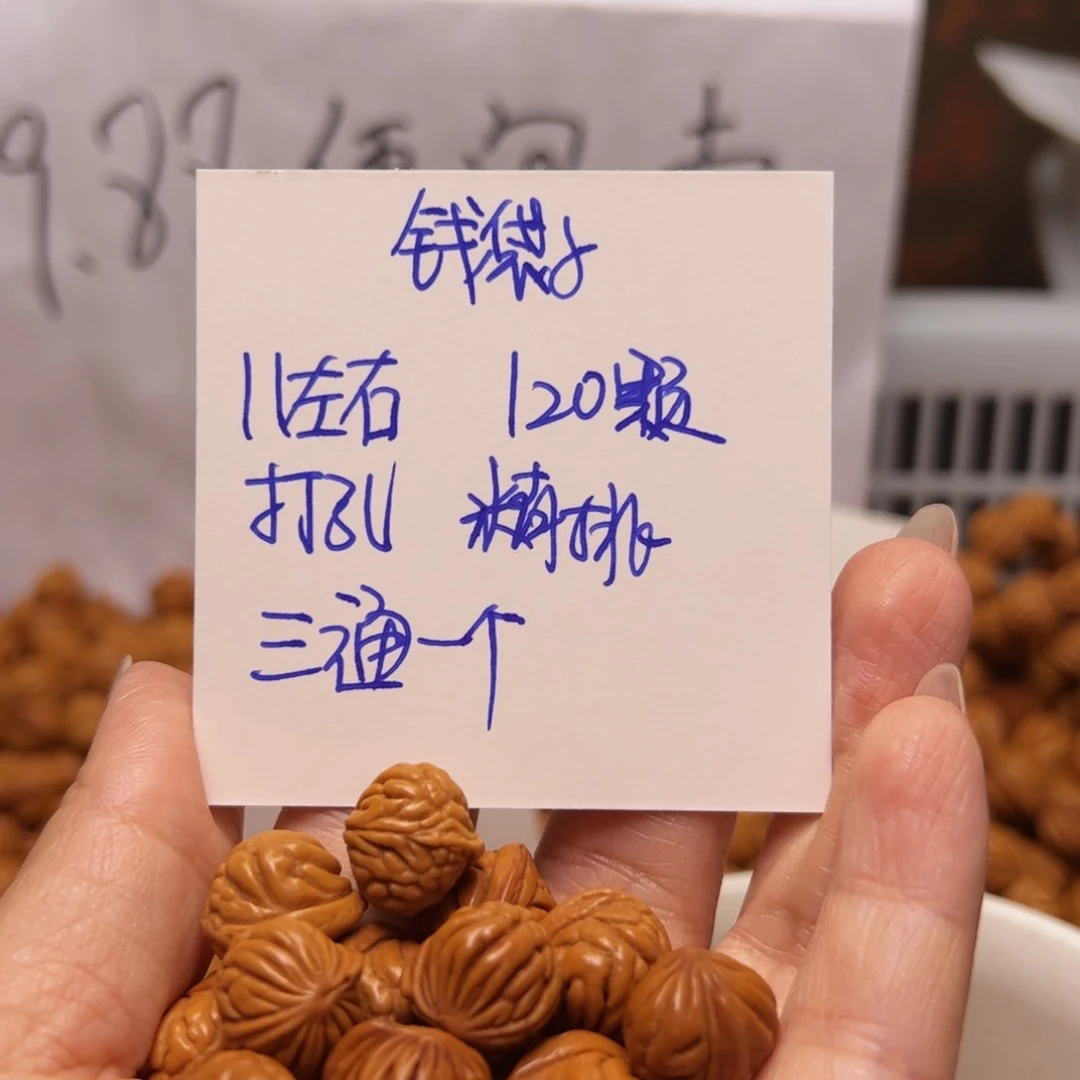 9.88
钱袋子
11左右 120颗
打孔 精排
三通一个